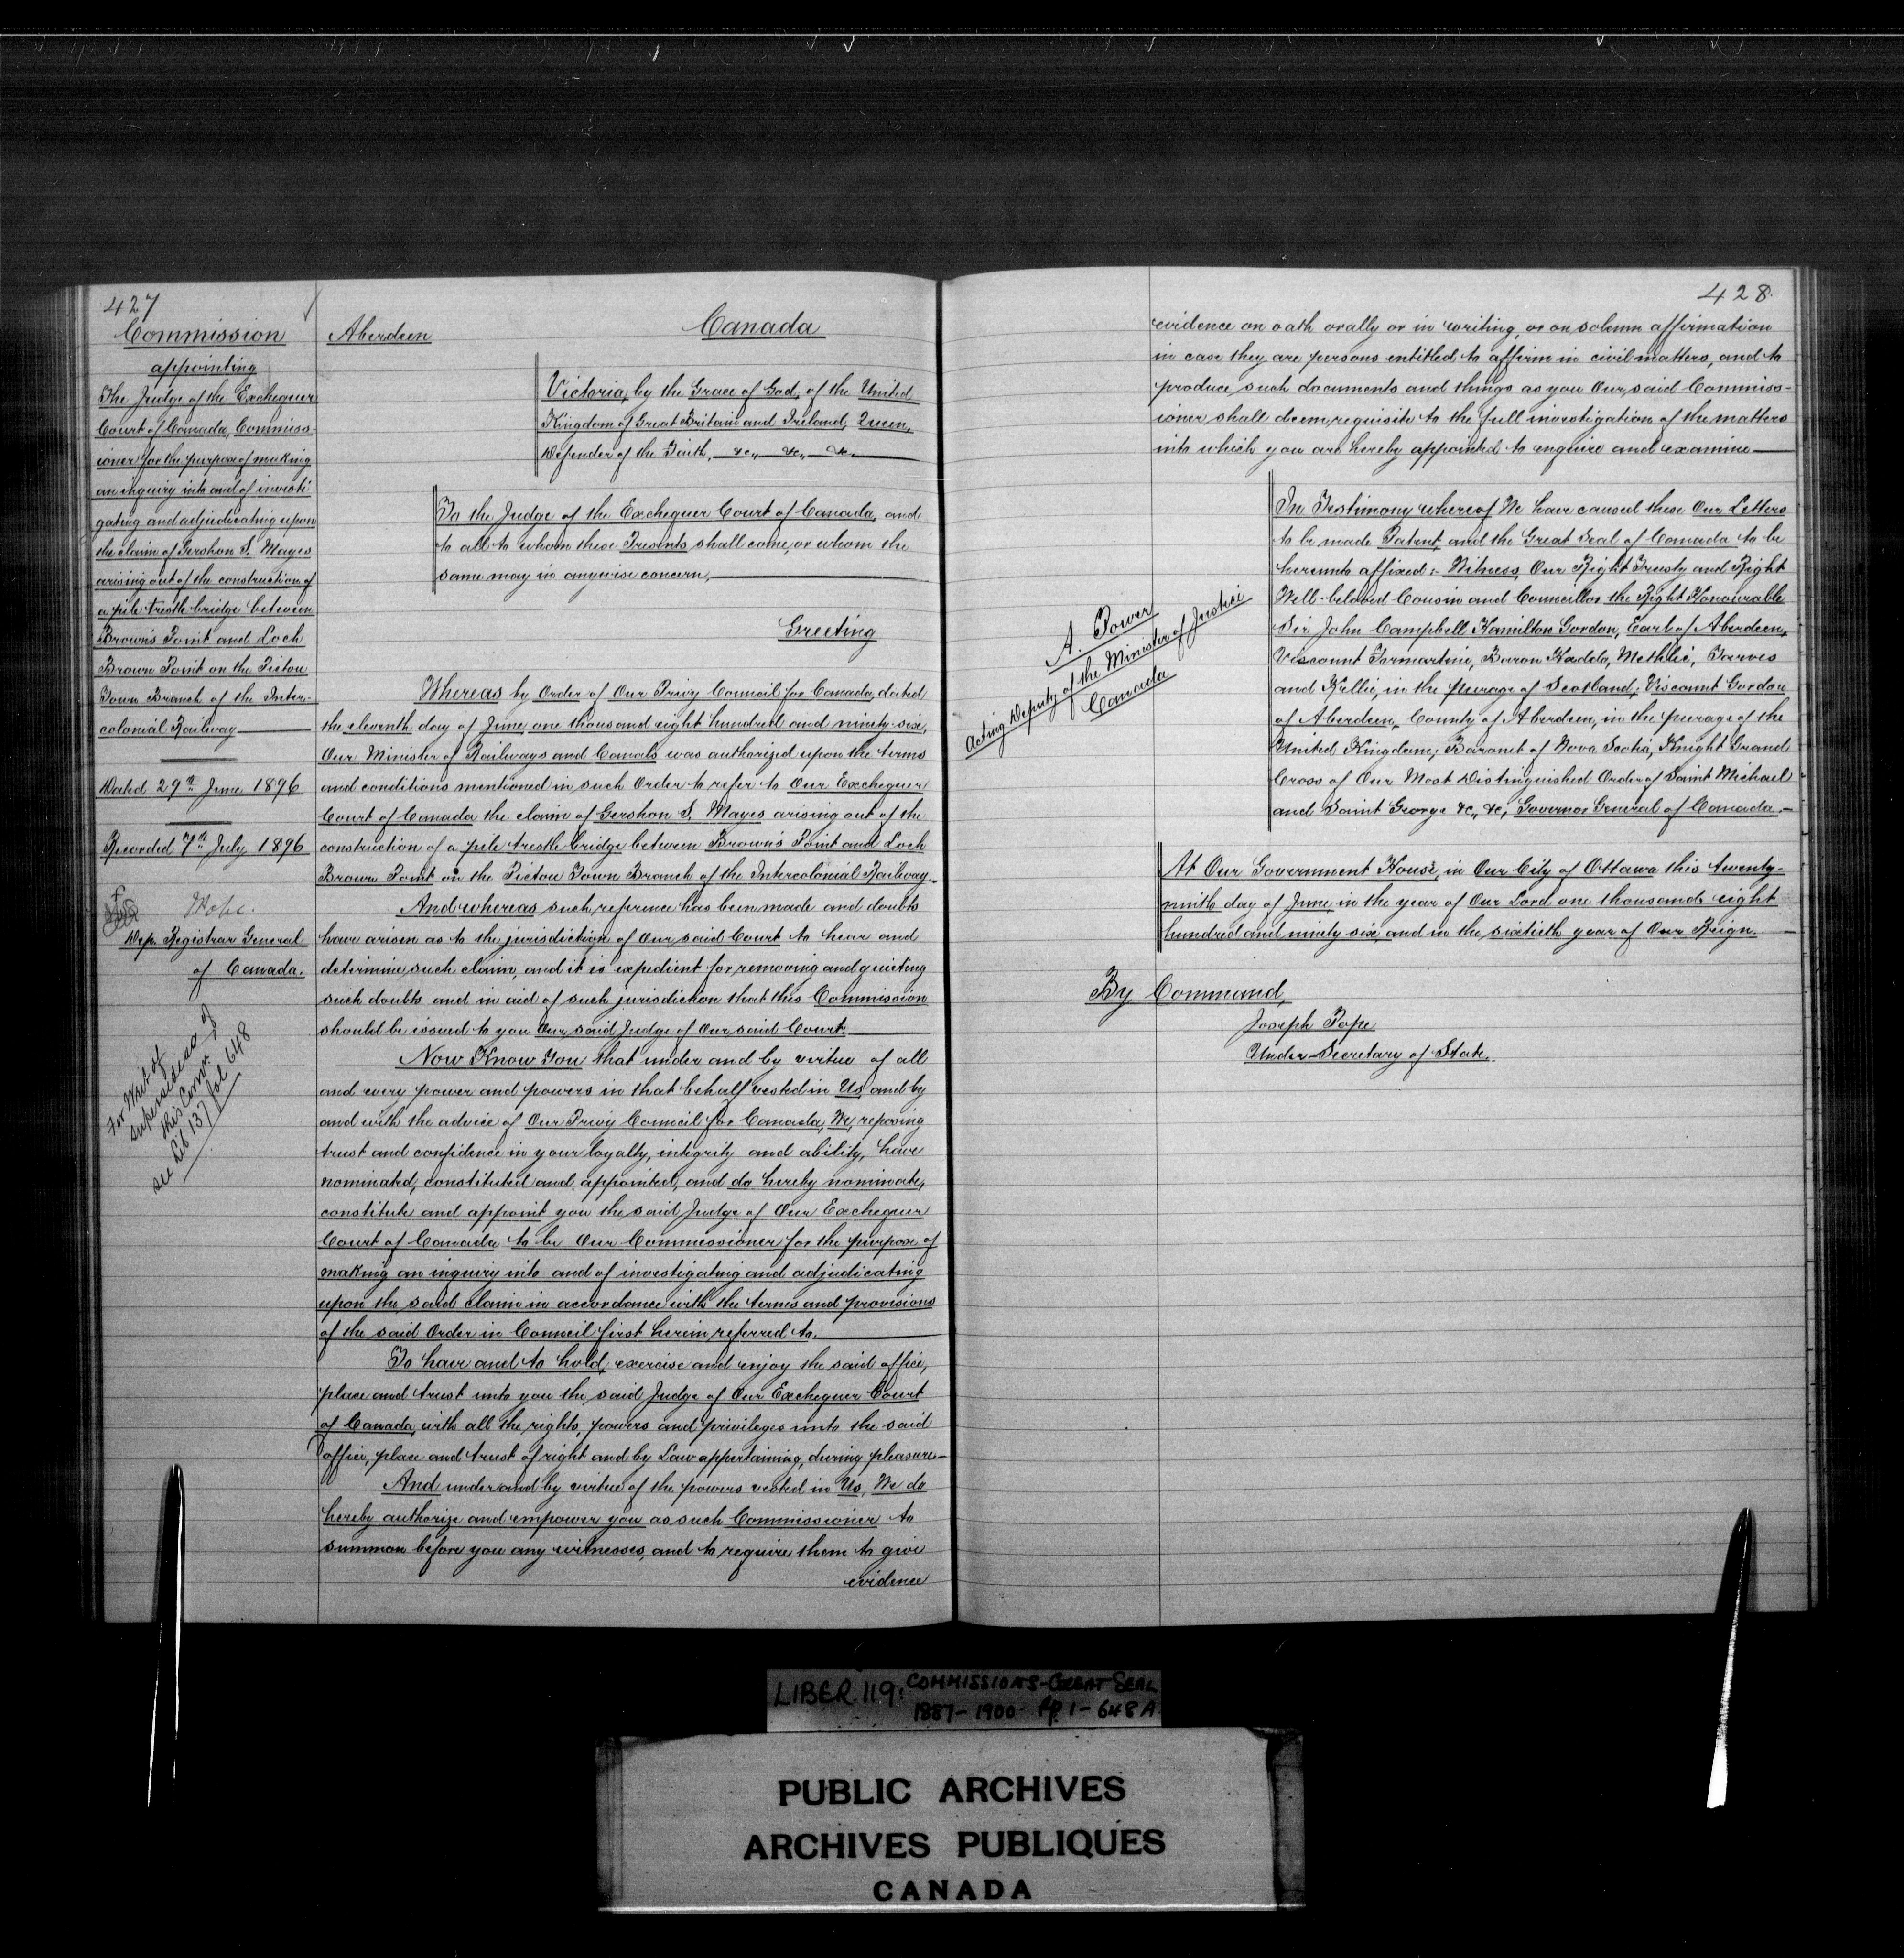 427
Commission
appointing
The Judge of the Exchequer
Court of Canada, Commiss-
ioner for the purpose of making
an inquiry into and of investi-
gating and adjudicating upon
the claim of Gershon S. Mayes
arising out of the construction of
a pile trestle bridge between
Brown's Point and Loch
Brown Point on the Pictou
Town Branch of the Inter-
colonial Railway
Dated 29th June 1896
Recorded 7th July 1896
Pope.
Dep. Registrar General
of Canada.
For Writ of
Supersedeas of
this Comn.
see Lib 137 fol 648
Aberdeen
Canada
Victoria, by the Grace of God, of the United
Kingdom of Great Britain and Ireland, Queen,
Defender of the Faith, &c., &c., &c.
To the Judge of the Exchequer Court of Canada, and
to all to whom these Presents shall come, or whom the
same may in anywise concern,
Greeting
Whereas by Order of Our Privy Council for Canada, dated
the eleventh day of June, one thousand eight hundred and ninety-six,
Our Minister of Railways and Canals was authorized upon the terms
and conditions mentioned in such Order to refer to Our Exchequer
Court of Canada the claim of Gershon S. Mayes arising out of the
construction of a pile trestle bridge between Brown's Point and Loch
Brown Point on the Pictou Town Branch of the Intercolonial Railway.
And whereas such reference has been made and doubts
have arisen as to the jurisdiction of Our said Court to hear and
determine such claim, and it is expedient for removing and quieting
such doubts and in aid of such jurisdiction that this Commission
should be issued to you Our said Judge of Our said Court.
Now Know You that under and by virtue of all
and every power and powers in that behalf vested in Us, and by
and with the advice of Our Privy Council for Canada, We, reposing
trust and confidence in your loyalty, integrity and ability, have
nominated, constituted and appointed, and do hereby nominate,
constitute and appoint you the said Judge of Our Exchequer
Court of Canada to be Our Commissioner for the purpose of
making an inquiry into and of investigating and adjudicating
upon the said claim in accordance with the terms and provisions
of the said Order in Council first herein referred to.
To have and to hold, exercise and enjoy the said office,
place and trust unto you the said Judge of Our Exchequer Court
of Canada, with all the rights, powers and privileges unto the said
office, place and trust of right and by Law appertaining, during pleasure
And under and by virtue of the powers vested in Us, We do
hereby authorize and empower you as such Commissioner to
summon before you any witnesses, and to require them to give
evidence
428.
evidence on oath orally or in writing, or on solemn affirmation
in case they are persons entitled to affirm in civil matters, and to
produce such documents and things as you Our said Commiss-
ioner shall deem requisite to the full investigation of the matters
into which you are hereby appointed to enquire and examine
A. Power
Acting Deputy of the Minister of Justice
Canada
In Testimony whereof We have caused these Our Letters
to be made Patent, and the Great Seal of Canada to be
hereunto affixed:- Witness, Our Right Trusty and Right
Well-beloved Cousin and Councillor the Right Honourable
Sir John Campbell Hamilton Gordon, Earl of Aberdeen,
Viscount Formartine, Baron Haddo, Methlic, Tarves
and Kellie, in the peerage of Scotland; Viscount Gordon
of Aberdeen, County of Aberdeen, in the peerage of the
United Kingdom; Baronet of Nova Scotia, Knight Grand
Cross of Our Most Distinguished Order of Saint Michael
and Saint George &c., &c., Governor General of Canada.-
At Our Government House, in Our City of Ottawa this twenty-
ninth day of June, in the year of Our Lord one thousand eight
hundred and ninety six, and in the sixtieth year of Our Reign.
By Command,
Joseph Pope
Under-Secretary of State.
LIBER.119: COMMISSIONS-GREAT SEAL
1887-1900- Pp. 1-648A.
PUBLIC ARCHIVES
ARCHIVES PUBLIQUES
CANADA